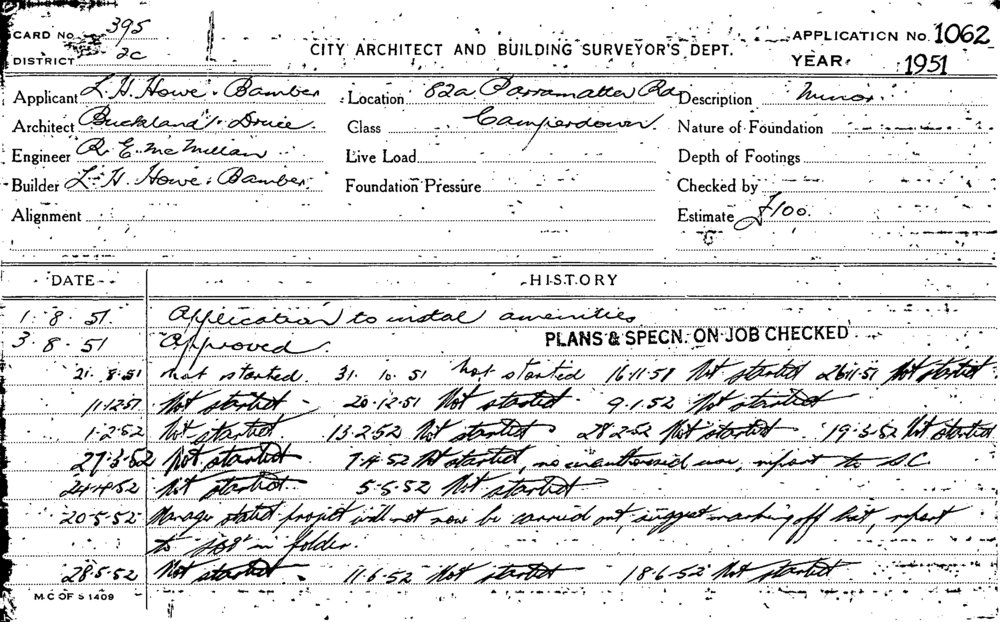 CARD No. 395
DISTRICT 2C
CITY ARCHITECT AND BUILDING SURVEYOR'S DEPT.
APPLICATION No. 1062
YEAR 1951
Applicant L. H. Howe & Bamber Location 82a Parramatta Rd Description Minor.
Architect Buckland & Druce. Class Camperdown. Nature of Foundation
Engineer R. E. McMillan Live Load Depth of Footings
Builder L. H. Howe & Bamber Foundation Pressure Checked by
Alignment Estimate £100.
DATE HISTORY
1. 8. 51. Application to instal amenities
3. 8. 51 Approved. PLANS & SPECN. ON JOB CHECKED
21. 8. 51 not started. 31. 10. 51 not started 16.11.51 Not started 26.11.51 Not started
11.12.51 Not started 20.12.51 Not started 9.1.52 Not started
1.2.52 Not started 13.2.52 Not started 28.2.52 Not started 19.3.52 Not started
27.3.52 Not started 7.4.52 Not started, no unauthorised use, report to S.C.
24.4.52 Not started. 5.5.52 Not started
20.5.52 Manager stated project will not now be carried out, suggest marking off list, report
to in folder.
28.5.52 Not started. 11.6.52 Not started 18.6.52 Not started
M.C OF S 1409